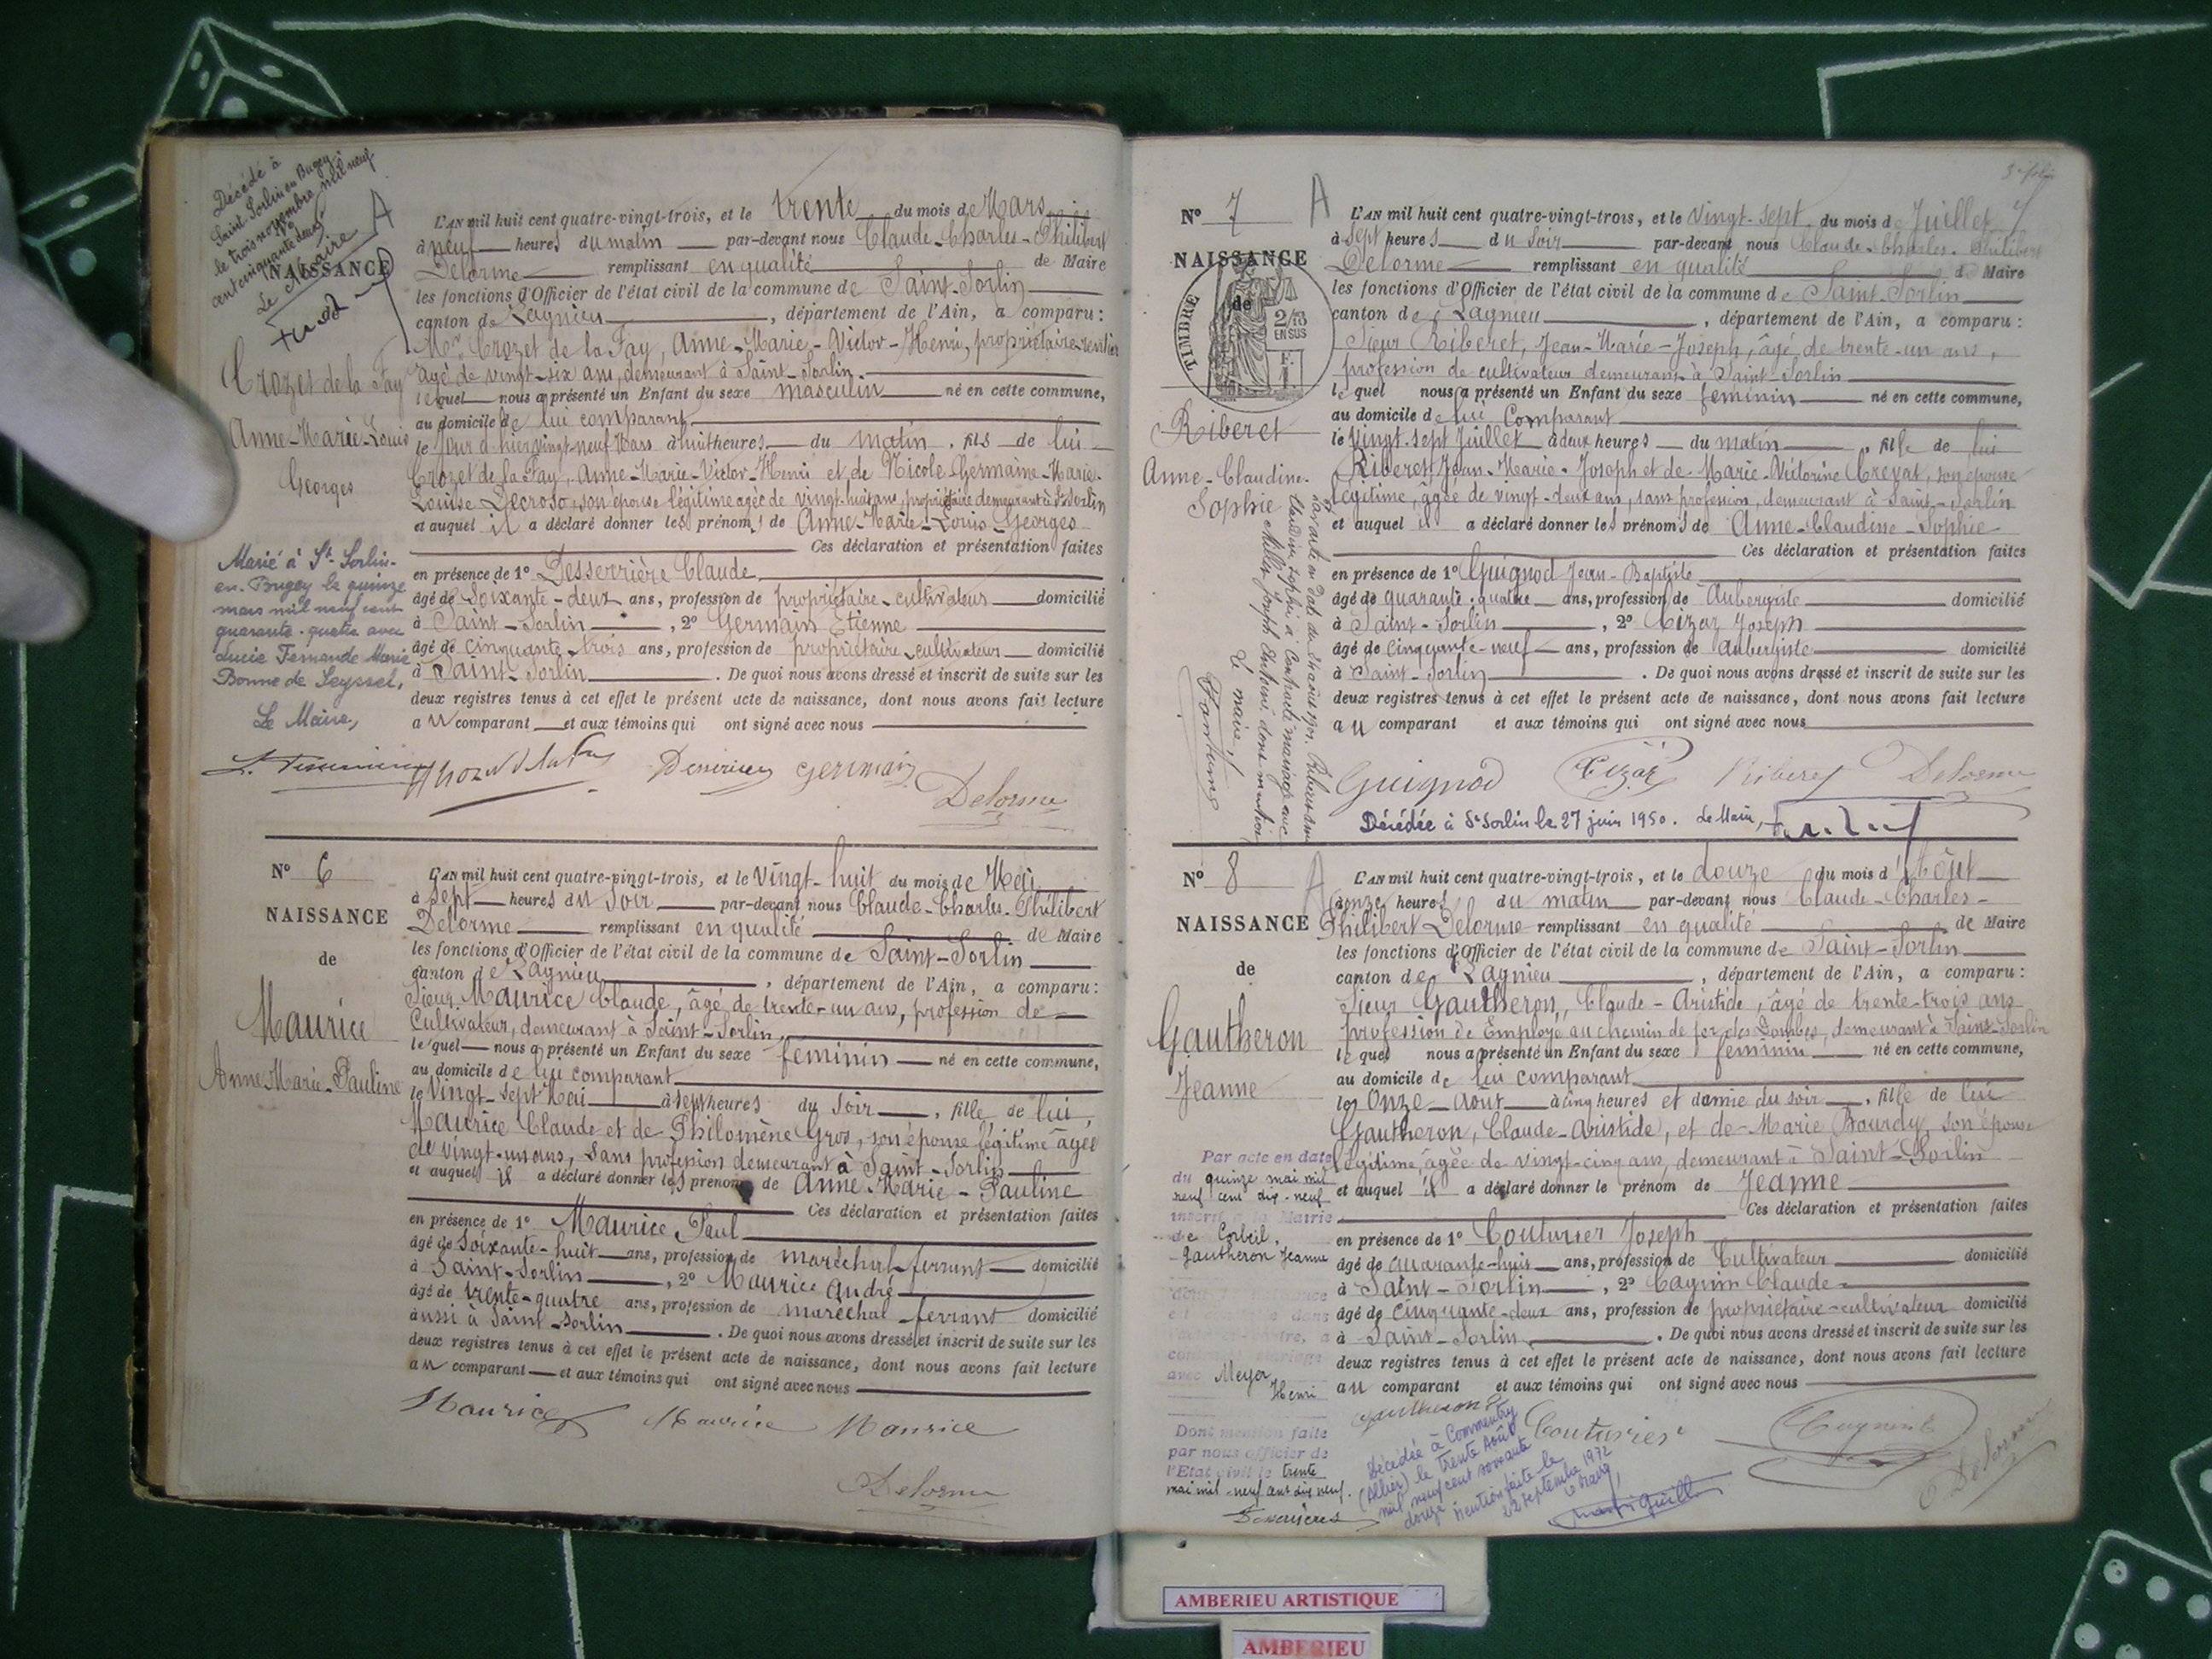 Décédé à
Saint Sorlin en Bugey
le trois novembre mil neuf
cent cinquante deux
Le Maire
A
NAISSANCE
de
Crozet de la Fay
Anne-Marie-Louis
Georges
Marié à St. Sorlin-
en-Bugey le quinze
mars mil neuf cent
quarante-quatre avec
Lucie Fernande Marie
Bonne de Seyssel,
Le Maire,
L'AN mil huit cent quatre-vingt-trois, et le trente du mois de Mars
à neuf heures du matin par-devant nous Claude-Charles-Philibert
Delorme remplissant en qualité de Maire
les fonctions d'Officier de l'état civil de la commune de Saint-Sorlin
canton de Lagnieu, département de l'Ain, a comparu:
Mr. Crozet de la Fay, Anne-Marie-Victor-Henri, propriétaire-rentier
âgé de vingt-six ans, demeurant à Saint-Sorlin.
lequel nous a présenté un Enfant du sexe masculin né en cette commune,
au domicile de lui comparant
le jour d'hier vingt-neuf Mars à huit heures du matin, fils de lui
Crozet de la Fay, Anne-Marie-Victor-Henri et de Nicole-Germaine-Marie-
Louise Decroso, son épouse légitime âgée de vingt-huit ans, propriétaire demeurant à St Sorlin
et auquel il a déclaré donner les prénoms de Anne-Marie-Louis-Georges
Ces déclaration et présentation faites
en présence de 1° Desserrière Claude
âgé de Soixante-deux ans, profession de propriétaire-cultivateur domicilié
à Saint-Sorlin, 2° Germain Etienne
âgé de cinquante-trois ans, profession de propriétaire-cultivateur domicilié
à Saint-Sorlin. De quoi nous avons dressé et inscrit de suite sur les
deux registres tenus à cet effet le présent acte de naissance, dont nous avons fait lecture
au comparant et aux témoins qui ont signé avec nous
Germain
Delorme
N° 6
NAISSANCE
de
Maurice
Anne Marie-Pauline
L'AN mil huit cent quatre-vingt-trois, et le Vingt-huit du mois de Mai
à Sept heures du Soir par-devant nous Claude-Charles-Philibert
Delorme remplissant en qualité de Maire
les fonctions d'Officier de l'état civil de la commune de Saint-Sorlin
canton de Lagnieu, département de l'Ain, a comparu:
Sieur Maurice Claude, âgé de trente-un ans, profession de
Cultivateur, demeurant à Saint-Sorlin,
lequel nous a présenté un Enfant du sexe feminin né en cette commune,
au domicile de lui comparant
le Vingt-sept Mai à sept heures du Soir, fille de lui
Maurice Claude et de Philomène Gros, son épouse légitime âgée
de vingt-un ans, Sans profession demeurant à Saint-Sorlin
et auquel il a déclaré donner les prénoms de Anne-Marie-Pauline
Ces déclaration et présentation faites
en présence de 1° Maurice Paul
âgé de Soixante-huit ans, profession de maréchal-ferrant domicilié
à Saint-Sorlin, 2° Maurice André
âgé de trente-quatre ans, profession de marechal-ferrant domicilié
aussi à Saint-Sorlin. De quoi nous avons dressé et inscrit de suite sur les
deux registres tenus à cet effet le présent acte de naissance, dont nous avons fait lecture
au comparant et aux témoins qui ont signé avec nous
Maurice Maurice Maurice
Delorme
N° 7
A
NAISSANCE
de
TIMBRE
2/10
EN SUS
Riberet
Anne-Claudine-
Sophie
L'AN mil huit cent quatre-vingt-trois, et le Vingt-sept du mois de Juillet
à Sept heures du Soir par-devant nous Claude-Charles-Philibert
Delorme remplissant en qualité de Maire
les fonctions d'Officier de l'état civil de la commune de Saint-Sorlin
canton de Lagnieu, département de l'Ain, a comparu:
Sieur Riberet, Jean-Marie-Joseph, âgé de trente-un ans,
profession de cultivateur demeurant à Saint-Sorlin
lequel nous a présenté un Enfant du sexe féminin né en cette commune,
au domicile de lui Comparant
le Vingt-sept Juillet à deux heures du matin, fille de lui
Riberet Jean-Marie-Joseph et de Marie-Victorine Crevat, son épouse
légitime, âgée de vingt-deux ans, sans profession, demeurant à Saint-Sorlin
et auquel il a déclaré donner les prénoms de Anne-Claudine-Sophie
Ces déclaration et présentation faites
en présence de 1° Guignod Jean-Baptiste
âgé de quarante-quatre ans, profession de Aubergiste domicilié
à Saint-Sorlin, 2° Cizar Joseph
âgé de Cinquante-neuf ans, profession de Aubergiste domicilié
à Saint-Sorlin. De quoi nous avons dressé et inscrit de suite sur les
deux registres tenus à cet effet le présent acte de naissance, dont nous avons fait lecture
au comparant et aux témoins qui ont signé avec nous
Guignod Cizar Riberet Delorme
Décédée à St Sorlin le 27 juin 1950. Le Maire,
N° 8
A
NAISSANCE
de
Gautheron
Jeanne
L'AN mil huit cent quatre-vingt-trois, et le douze du mois d'Août
à onze heures du matin par-devant nous Claude-Charles-
Philibert Delorme remplissant en qualité de Maire
les fonctions d'Officier de l'état civil de la commune de Saint-Sorlin
canton de Lagnieu, département de l'Ain, a comparu:
Sieur Gautheron, Claude-Aristide, âgé de trente-trois ans
profession de Employé au chemin de fer des Dombes, demeurant à Saint-Sorlin
lequel nous a présenté un Enfant du sexe feminin né en cette commune,
au domicile de lui comparant
le Onze Août à cinq heures et demie du soir, fille de lui
Gautheron, Claude-Aristide, et de Marie Bourdy, son épouse
légitime, âgée de vingt-cinq ans, demeurant à Saint-Sorlin
et auquel il a déclaré donner le prénom de Jeanne
Ces déclaration et présentation faites
en présence de 1° Couturier Joseph
âgé de quarante-huit ans, profession de Cultivateur domicilié
à Saint-Sorlin, 2° Claude
âgé de Cinquante-deux ans, profession de propriétaire-cultivateur domicilié
à Saint-Sorlin. De quoi nous avons dressé et inscrit de suite sur les
deux registres tenus à cet effet le présent acte de naissance, dont nous avons fait lecture
au comparant et aux témoins qui ont signé avec nous
Gautheron Couturier Delorme
Par acte en date
du quinze mai mil
neuf cent dix-neuf
inscrit à la Mairie
de Corbeil,
Gautheron Jeanne
avec Meyer
Henri
Dont mention faite
par nous officier de
l'Etat civil le trente
mai mil neuf cent dix neuf.
Décédée à Commentry
(Allier) le trente Août
mil neuf cent soixante
douze
Mention faite le
22 septembre 1972
AMBERIEU ARTISTIQUE
AMBERIEU